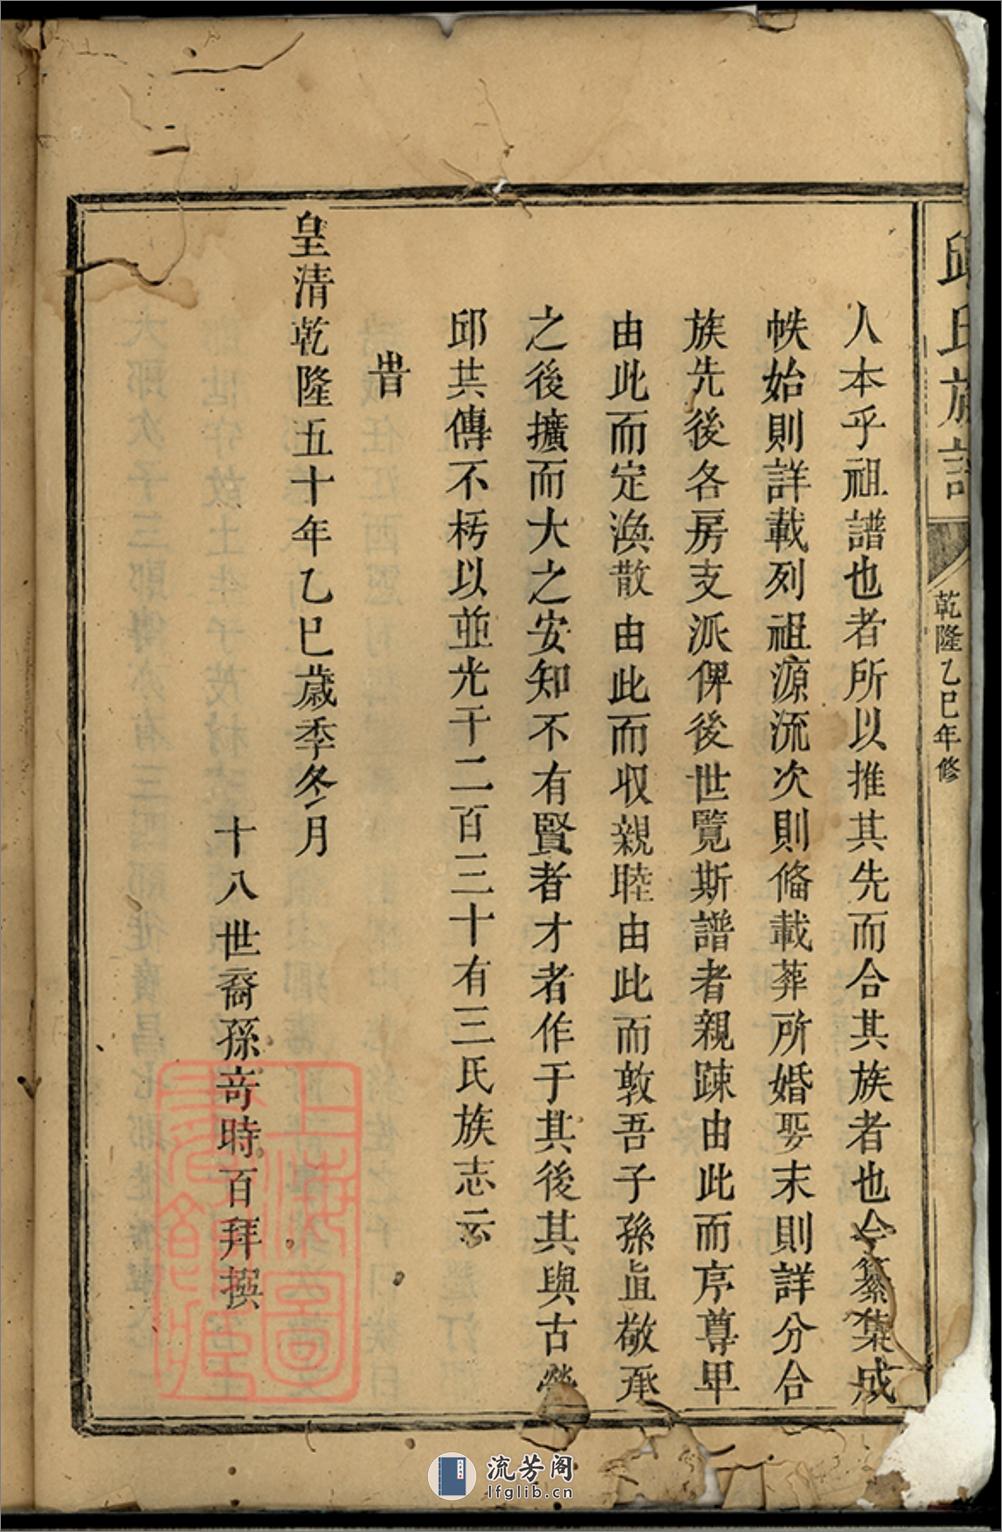 邱氏族譜
乾隆乙巳年修
人本乎祖譜也者所以推其先而合其族者也今纂集成
帙始則詳載列祖源流次則俻載葬所婚娶末則詳分合
族先後各房支派俾後世覽斯譜者親踈由此而序尊卑
由此而定渙散由此而収親睦由此而敦吾子孫直敬承
之後擴而大之安知不有賢者才者作于其後其與古營
邱其傳不朽以並光于二百三十有三氏族志云
旹
皇清乾隆五十年乙巳歲季冬月
十八世裔孫竒時百拜撰
上海圖
書館藏
流芳阁
lfglib.cn